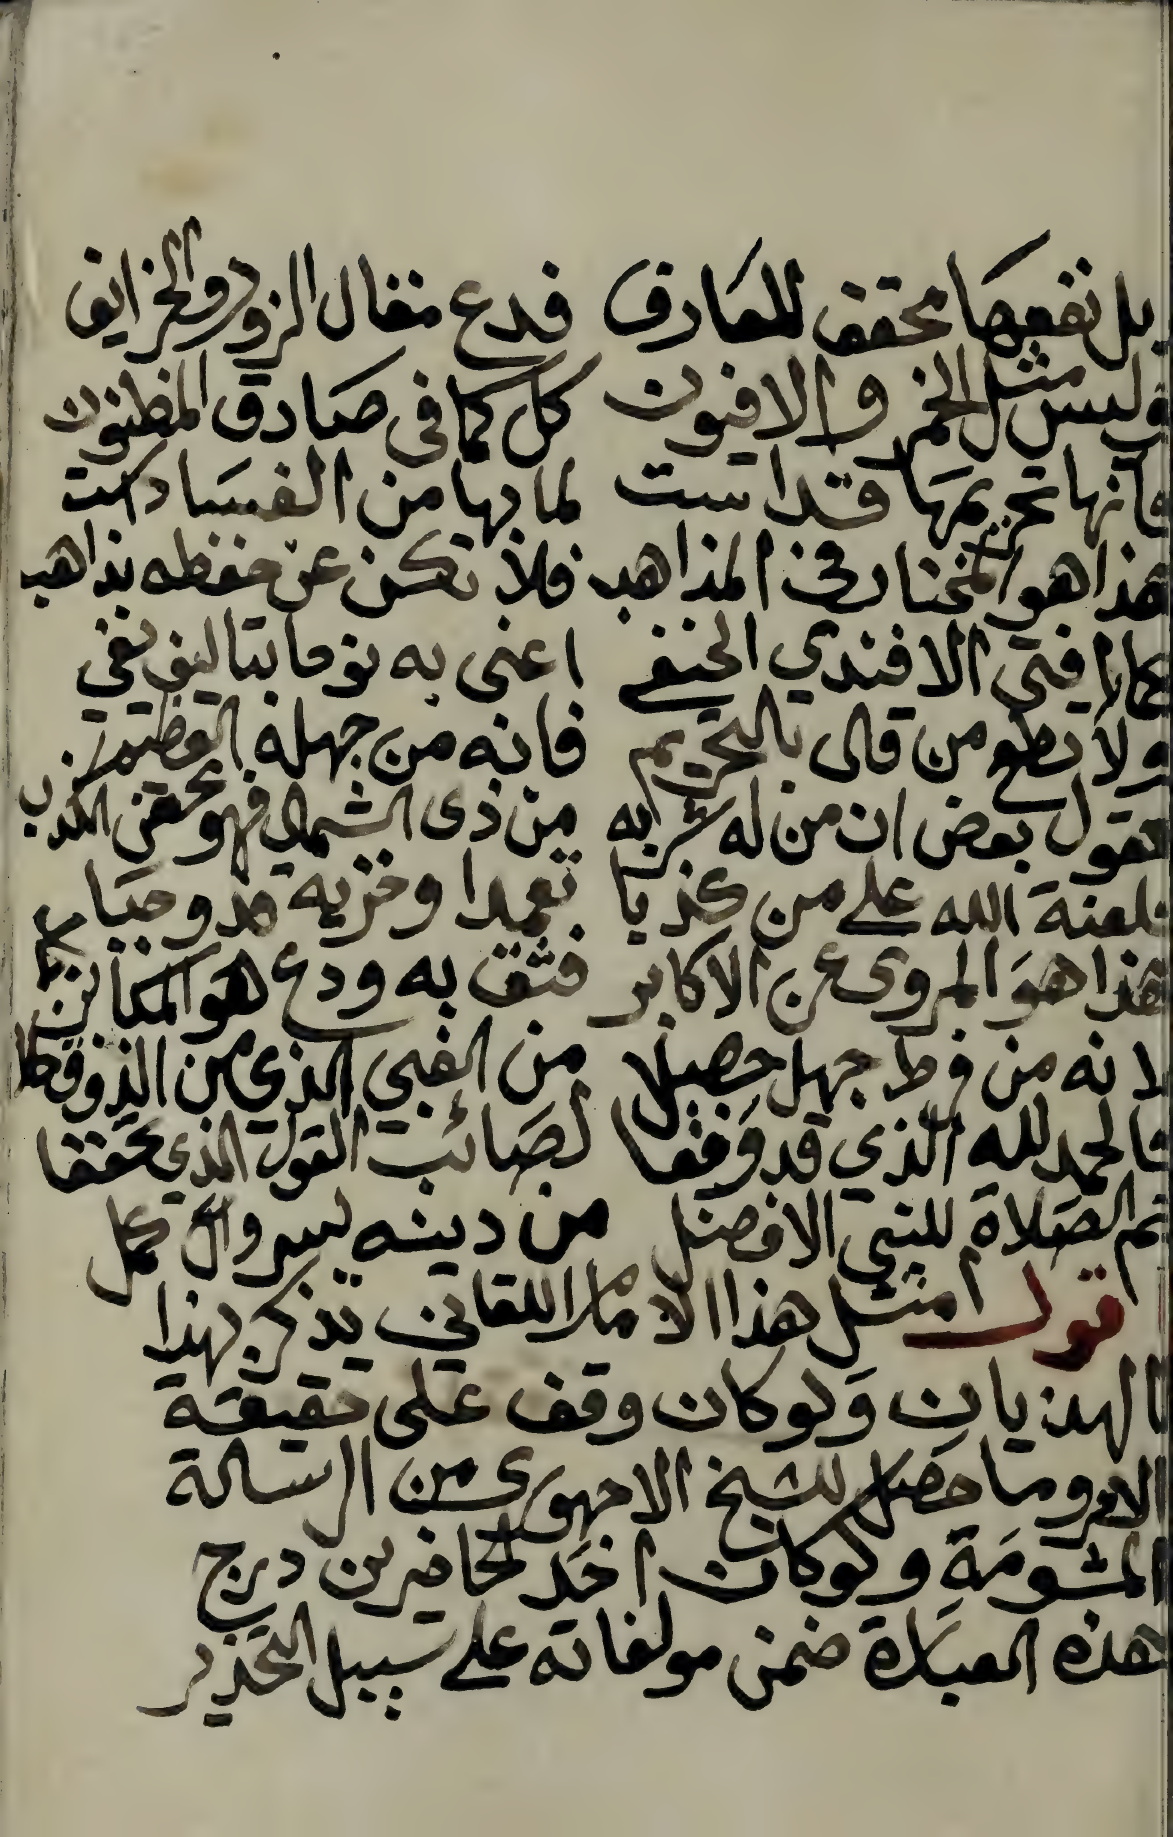 بل نفعها محقق للعارف فدع مقال الزور والخرايف
وليس مثل الخمر والافيون كل كما في صادق المظنون
فانها تحريمها قد اتت لما بها من الفساد
هذا هو المختار في المذاهب فلا تكن عن حفظه بذاهب
كما افتى الافندي الحنفي اعنى به نوحا بتاليف نفي
ولا تطع من قال بالتحريم فانه من جهله العظيم
فقول بعض ان من له شرابه من ذى الشمال فهو محض الكذب
فلعنة الله على من كذبا تعمدا وخزيه قد وجبا
هذا هو المروى عن الاكابر فثق به ودع هو المكابر
لانه من فرط جهل حصلا من الغبي الذي من الذوق خلا
فالحمد لله الذي قد وفقا لصائب القول الذي تحققا
ثم الصلاة للنبي الافضل من دينه يسر وال كمل
قول امثل هذا الامام اللقاني تذكر بهذا
الهذيان ولو كان وقف على حقيقة
الامر وما حصل للشيخ الاجهورى من الرسالة
المشومة ولو كان احد الحاضرين درج
هذه العبارة ضمن مولفاته على سبيل التحذير